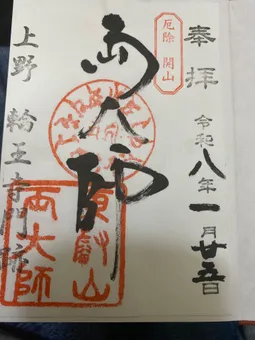 奉拝
厄除 開山
令和八年一月廿五日
両大師
東叡山
両大師
上野 輪王寺門跡